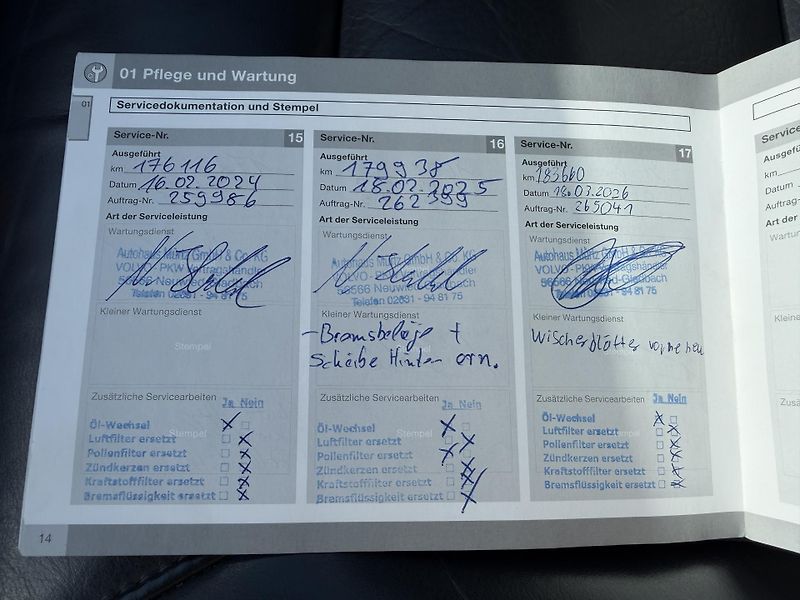 01 Pflege und Wartung
01
Servicedokumentation und Stempel
Service-Nr. 15
Ausgeführt
km 176116
Datum 16.02.2024
Auftrag-Nr. 259986
Art der Serviceleistung
Wartungsdienst
Autohaus Münz GmbH & Co. KG
VOLVO - PKW Vertragshändler
56566 Neuwied
Telefon 02631 - 94 81 75
Kleiner Wartungsdienst
Stempel
Zusätzliche Servicearbeiten
Ja Nein
Öl-Wechsel
Luftfilter ersetzt
Stempel
Pollenfilter ersetzt
Zündkerzen ersetzt
Kraftstofffilter ersetzt
Bremsflüssigkeit ersetzt
Service-Nr. 16
Ausgeführt
km 179938
Datum 18.02.2025
Auftrag-Nr. 262399
Art der Serviceleistung
Wartungsdienst
Autohaus Münz GmbH & Co. KG
VOLVO - PKW Vertragshändler
56566 Neuwied
Telefon 02631 - 94 81 75
Kleiner Wartungsdienst
- Bremsbeläge +
Scheibe Hinten ern.
Zusätzliche Servicearbeiten
Ja Nein
Öl-Wechsel
Luftfilter ersetzt
Stempel
Pollenfilter ersetzt
Zündkerzen ersetzt
Kraftstofffilter ersetzt
Bremsflüssigkeit ersetzt
Service-Nr. 17
Ausgeführt
km 183660
Datum 18.03.2026
Auftrag-Nr. 265041
Art der Serviceleistung
Wartungsdienst
Autohaus Münz GmbH & Co. KG
VOLVO - PKW Vertragshändler
56566 Neuwied-Gladbach
Telefon 02631 - 94 81 75
Kleiner Wartungsdienst
Wischerblätter vorne neu
Stempel
Zusätzliche Servicearbeiten
Ja Nein
Öl-Wechsel
Luftfilter ersetzt
Pollenfilter ersetzt
Zündkerzen ersetzt
Kraftstofffilter ersetzt
Bremsflüssigkeit ersetzt
14
Service
Ausgefü
km
Datum
Auftrag-
Art der